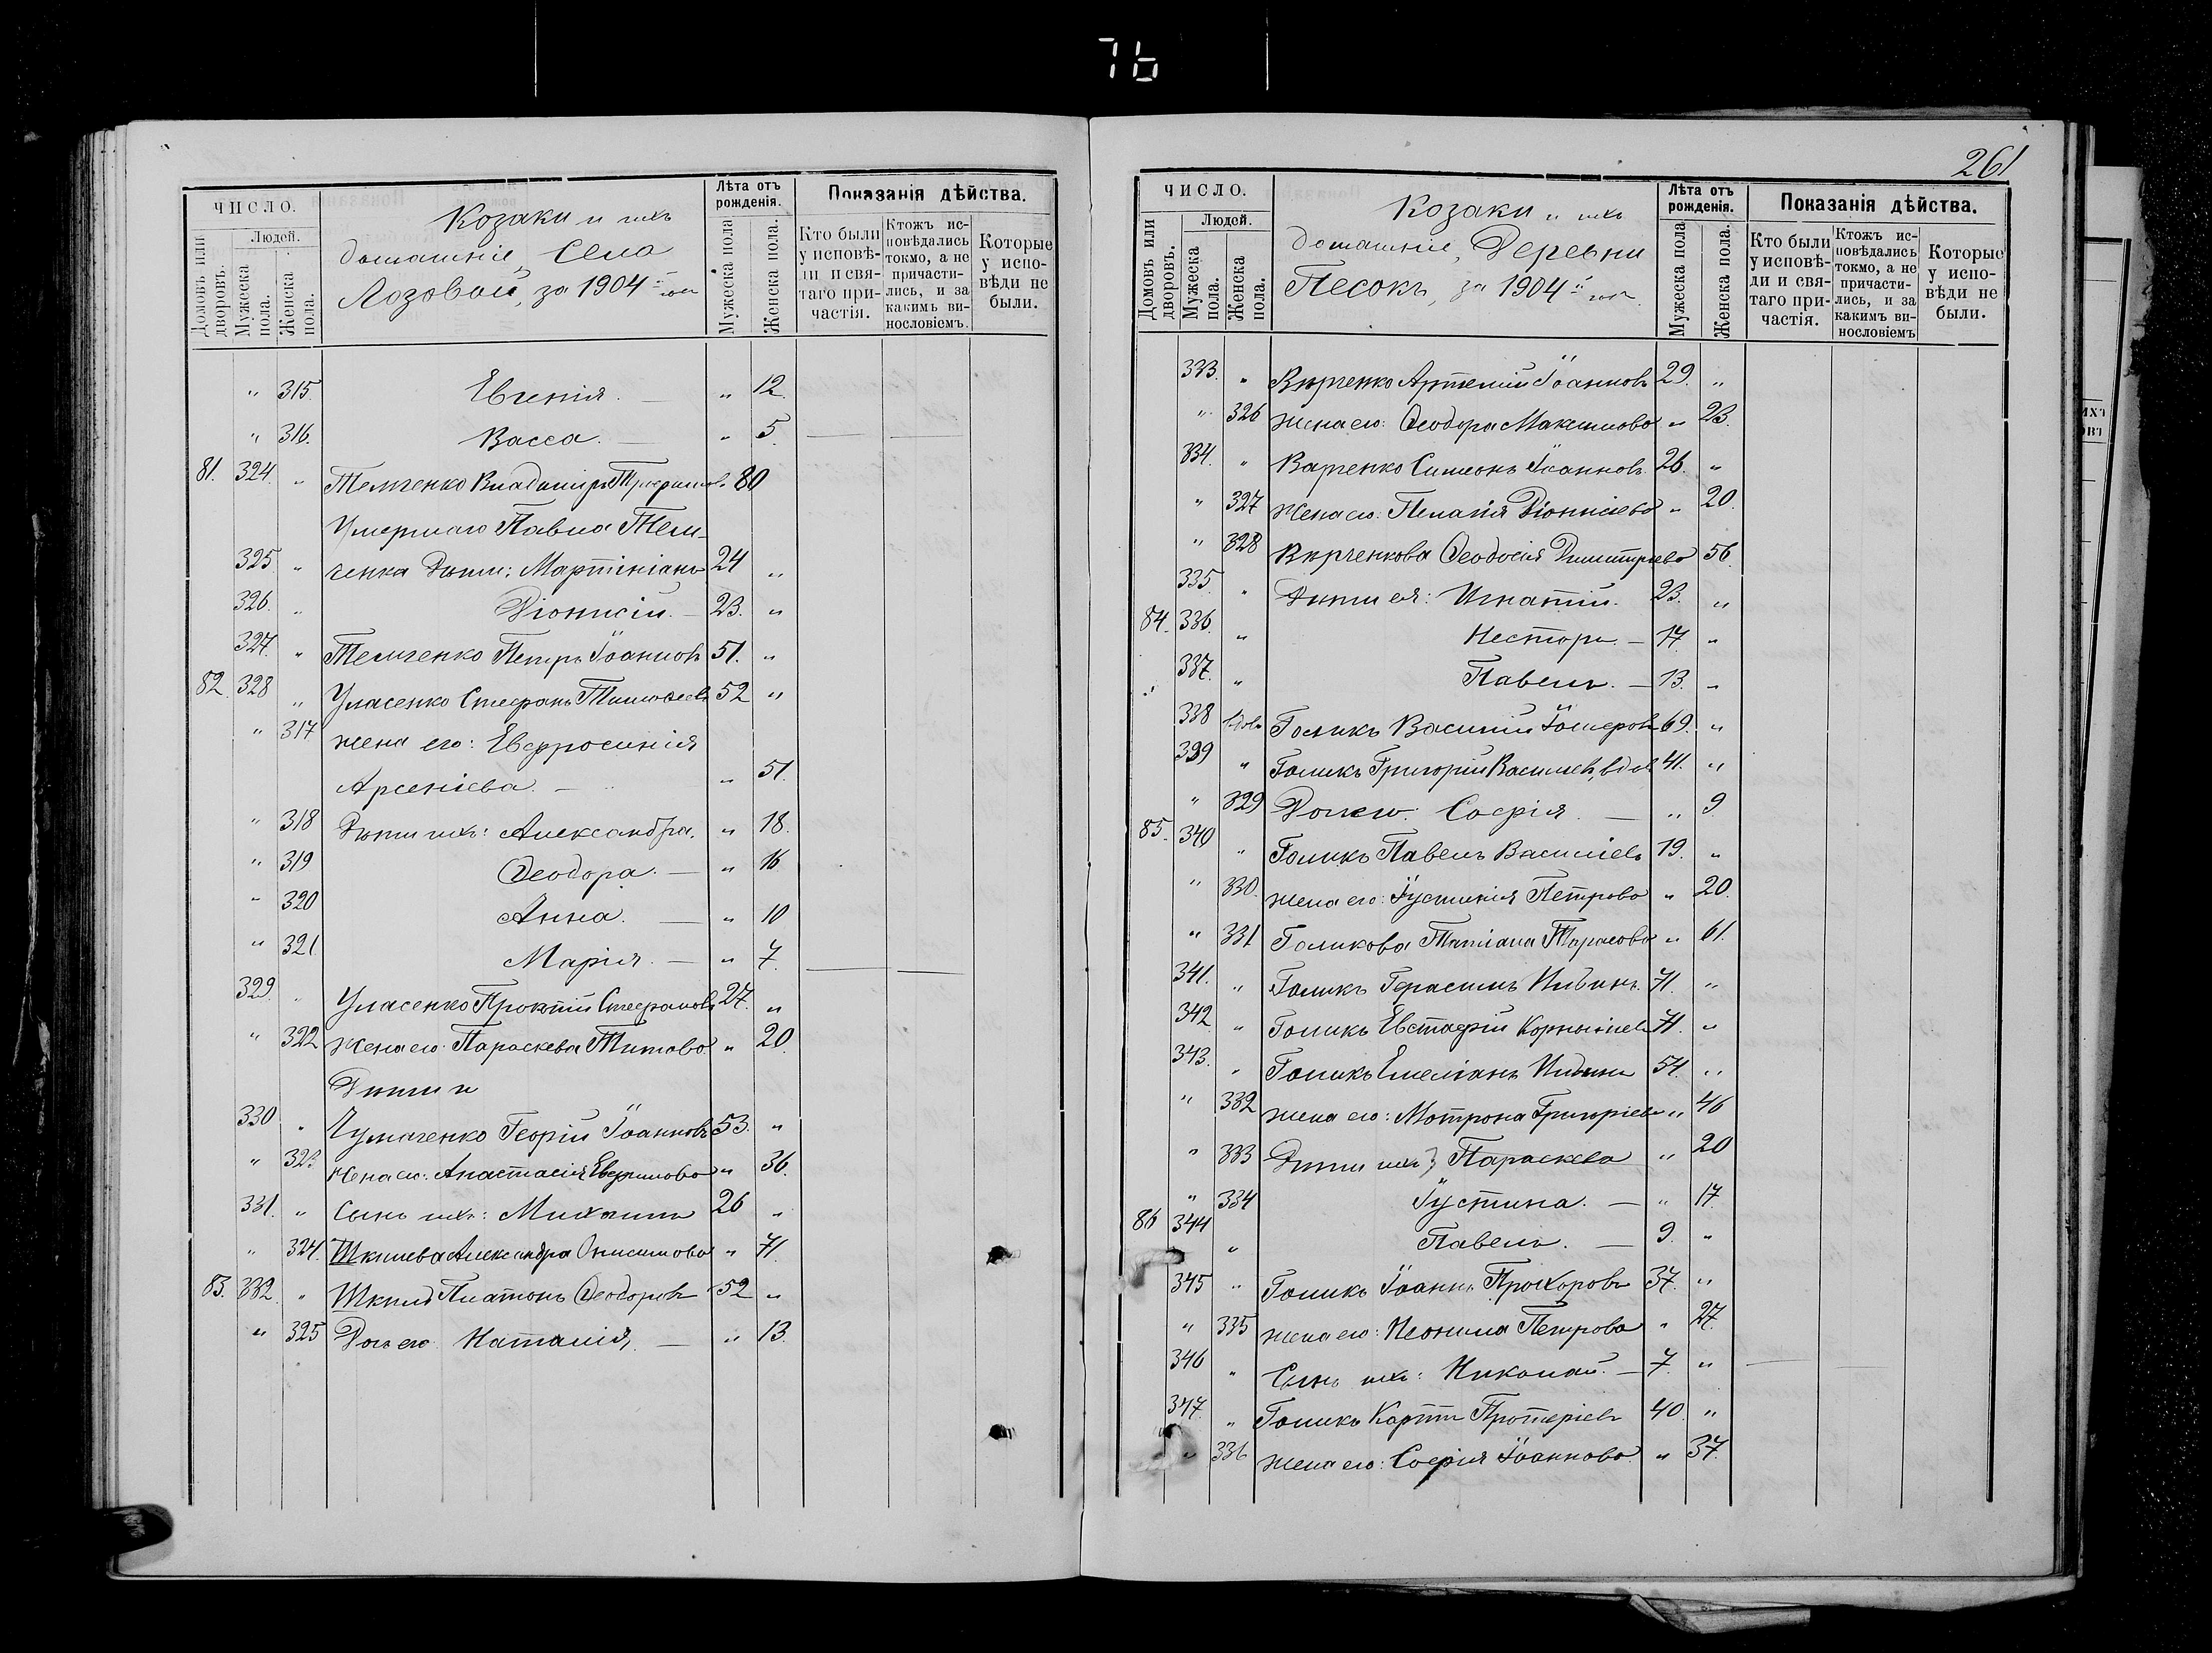 76
ЧИСЛО.
Домовъ или дворовъ.
Людей.
Мужеска пола.
Женска пола.
Козаки и ихъ
домашніе, Села
Лозовой, за 1904й годъ
Лѣта отъ рожденія.
Мужеска пола
Женска пола.
Показанія дѣйства.
Кто были у исповѣди и святаго причастія.
Ктожъ исповѣдались токмо, а не причастились, и за какимъ винословіемъ.
Которые у исповѣди не были.
" 315. Евгенія. — " 12.
" 316. Васса. — " 5.
81. 324. " Темченко Владиміръ 80
Умершаго Павла Тем-
325 " ченка Дѣти: Мартініанъ 24 "
326. " Діонисій. — 23. "
327. " Темченко Петръ Іоанновъ 51. "
82. 328 " Уласенко Стефанъ Тимоѳеевъ 52 "
" 317 жена его: Евфросинія
Арсеніева. — " 51.
" 318 Дѣти ихъ: Александра. " 18.
" 319 Ѳеодора. — " 16.
" 320 Анна. — " 10
" 321 Марія. — " 7.
329. " Уласенко Прокпій Стефановъ 27. "
" 322 Жена его: Параскева Титова " 20.
Дѣти и
330 " Чумаченко Георгій Іоанновъ 53. "
" 323 Жена его: Анастасія Евфимова " 36.
331. " Сынъ ихъ: Михаилъ 26 "
" 324. Александра Онисимова " 71.
83. 332. " Платонъ Ѳеодоровъ 52 "
" 325 Дочь его Наталія. — " 13.
261
ЧИСЛО.
Домовъ или дворовъ.
Людей.
Мужеска пола.
Женска пола.
Козаки и ихъ
домашніе, Деревни
Песокъ, за 1904й годъ.
Лѣта отъ рожденія.
Мужеска пола
Женска пола.
Показанія дѣйства.
Кто были у исповѣди и святаго причастія.
Ктожъ исповѣдались токмо, а не причастились, и за какимъ винословіемъ
Которые у исповѣди не были.
333. " Кирченко Артемій Іоанновъ 29. "
" 326 жена его: Ѳеодора Максимова " 23.
334. " Симеонъ Іоанновъ 26. "
" 327 Жена его: Пелагія Діонисіева " 20.
" 328 Кирченкова Ѳеодосія Димитріева 56.
335. " Дѣти ея: Игнатій. 23. "
84. 336. " Несторъ. — 17. "
337. " Павелъ. — 13. "
338 вдов. Голикъ Василій 69. "
339 " Голикъ Григорій Васильевъ, вдов 41. "
" 329 Дочь его: Софія. — " 9.
85. 340 " Голикъ Павелъ Василіевъ 19. "
" 330. жена его: Іустинія Петрова " 20.
" 331 Голикова Татіана Тарасова " 61.
341. " Голикъ Герасимъ 71. "
342 " Голикъ Евстафій Корниліевъ 71. "
343. " Голикъ Емеліанъ 51. "
" 332 жена его: Мотрона Григоріева " 46
" 333 Дѣти ихъ: Параскева " 20
" 334 Іустина. — " 17.
86 344 " Павелъ. — 9. "
345 " Голикъ Іоаннъ Прохоровъ 37. "
" 335 жена его: Неонила Петрова " 27.
346 " Сынъ ихъ: Николай. — 7. "
347. " Голикъ Карпъ 40. "
" 336 жена его: Софія Іоаннова " 37.